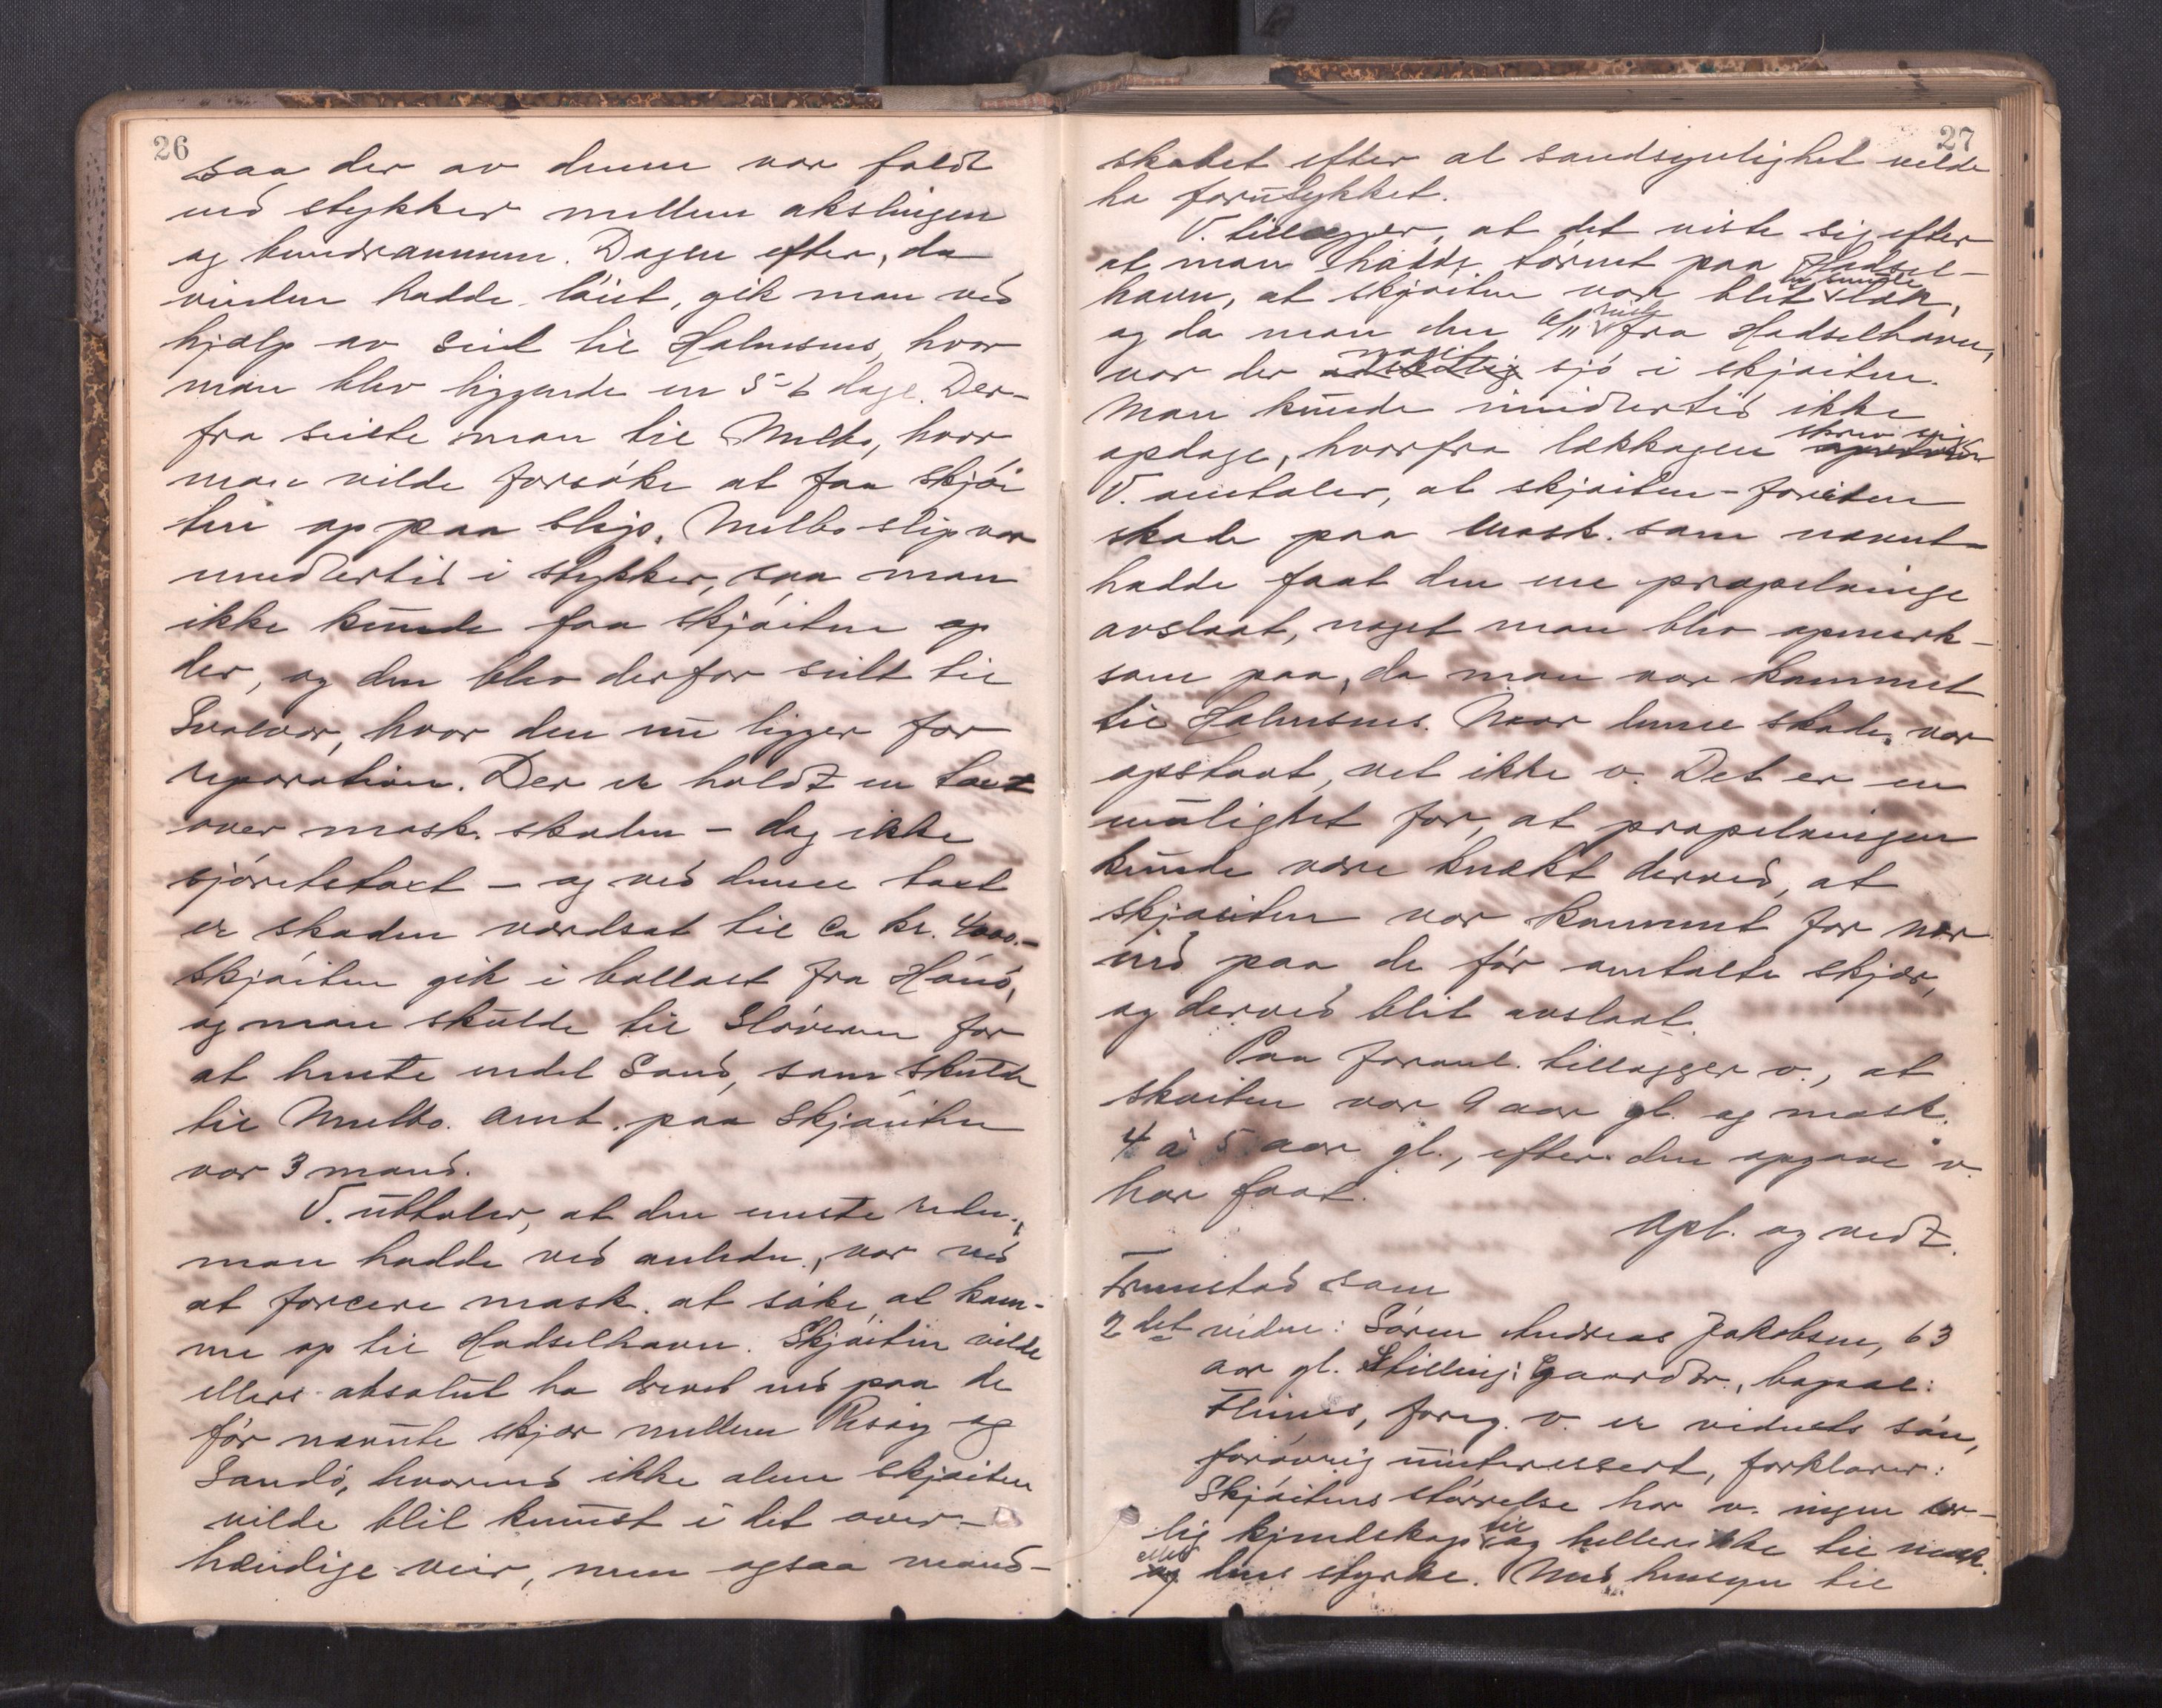 26
saa der av denne var faldt
ned stykker mellem akslingen
og bundrammen. Dagen efter, da
vinden hadde löiet, gik man ved
hjælp av seil til Holmsnes, hvor
man blev liggende en 5-6 dage. Der-
fra seilte man til Melbo, hvor
man vilde forsöke at faa skjöi
ten op paa slip. Melbo slip var
imidlertid i stykker, saa man
ikke kunde faa skjöiten op
der, og den blev derfor seilt til
Svolvær, hvor den nu ligger for
reparation. Der er holdt en taxt
over mask. skaden - dog ikke
sjöretstaxt - og ved denne taxt
er skaden værdsat til ca kr. 4000.-
Skjöiten gik i ballast fra
og man skulde til for
at hente endel Sand, som skulde
til Melbo. Amt. paa Skjöiten
var 3 mand.
V. uttaler, at den eneste redn.,
man hadde ved anledn., var ved
at forcere mask. at söke at kom-
me op til Hadselhavn. Skjöiten vilde
ellers absolut ha drevet ned paa de
för nævnte skjær mellem og
Sandö, hvorved ikke alene skjöiten
vilde blit knust i det over-
hændige veir, men ogsaa mand-
27
skabet efter al sandsynlighet vilde
ha forulykket.
V. tillægger, at det viste sig efter
at man hadde törnet paa Hadsel-
havn, at skjöiten var blit læk,
og da man den 6/11 fra Hadselhavn,
var der meget sjö i skjöiten.
Man kunde imidlertid ikke
opdage, hvorfra lækkagen skrev sig
V. omtaler, at skjöiten - foruten
skade paa mask. som nævnt -
hadde faat den ene propelvinge
avslaat, noget man blev opmerk-
som paa, da man var kommet
til Holmsnes. Naar denne skade var
opstaat, vet ikke v. Det er en
mulighet for, at propelvingen
kunde være knækt derved, at
skjöiten var kommet for nær
ind paa de för omtalte skjær,
og derved blit avslaat.
Paa foranl. tillægger v., at
sköiten var 9 aar gl. og mask.
4 à 5 aar gl., efter den opgave v.
har faat.
Opl. og vedt.
Fremstod som
2 det vidne: Sören Andreas Jakobsen, 63
aar gl. Stilling: Gaardbr., bopæl:
foreg. v. er vidnets sön,
forövrig uinteressert, forklarer:
Skjöitens störrelse har v. ingen sær-
lig kjendskap til og heller ikke til mask.
eller dens styrke. Med hensyn til